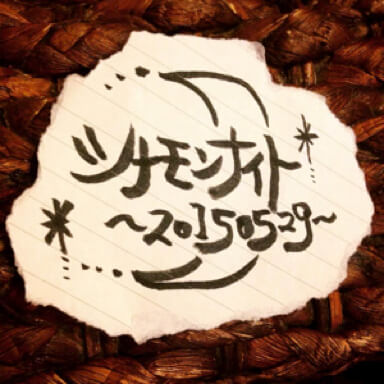 シナモンナイト
～20150529～